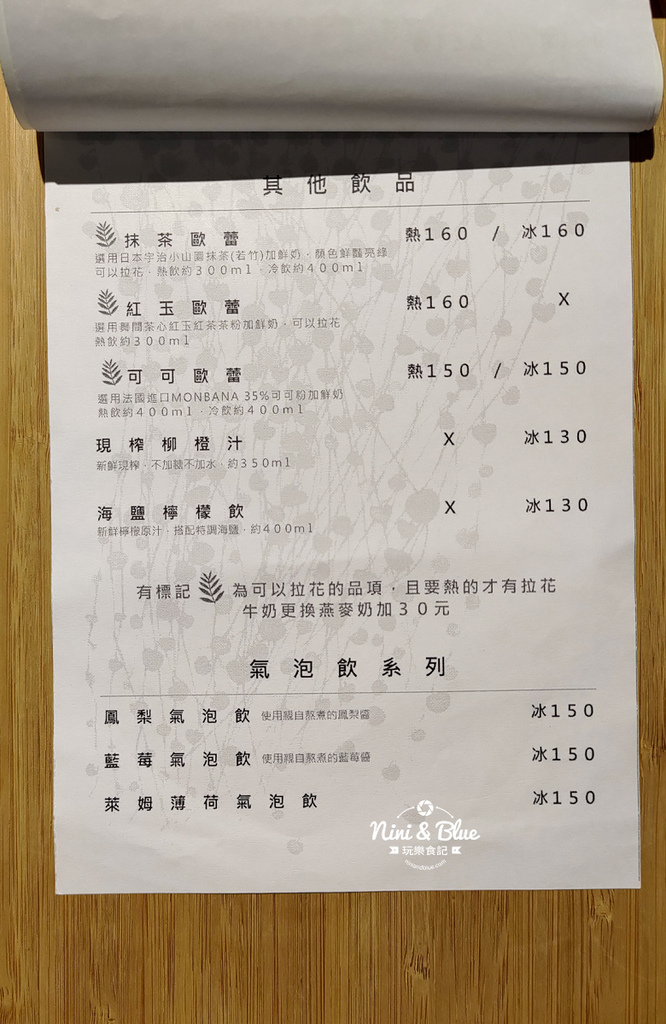 其他飲品
抹茶歐蕾 熱160 / 冰160
選用日本宇治小山園抹茶(若竹)加鮮奶，顏色鮮豔亮綠
可以拉花，熱飲約300ml，冷飲約400ml
紅玉歐蕾 熱160 X
選用舞間茶心紅玉紅茶茶粉加鮮奶，可以拉花
熱飲約300ml
可可歐蕾 熱150 / 冰150
選用法國進口MONBANA 35%可可粉加鮮奶
熱飲約400ml，冷飲約400ml
現榨柳橙汁 X 冰130
新鮮現榨，不加糖不加水，約350ml
海鹽檸檬飲 X 冰130
新鮮檸檬原汁，搭配特調海鹽，約400ml
有標記 為可以拉花的品項，且要熱的才有拉花
牛奶更換燕麥奶加30元
氣泡飲系列
鳳梨氣泡飲 使用親自熬煮的鳳梨醬 冰150
藍莓氣泡飲 使用親自熬煮的藍莓醬 冰150
萊姆薄荷氣泡飲 冰150
Nini & Blue
玩樂食記
niniandblue.com